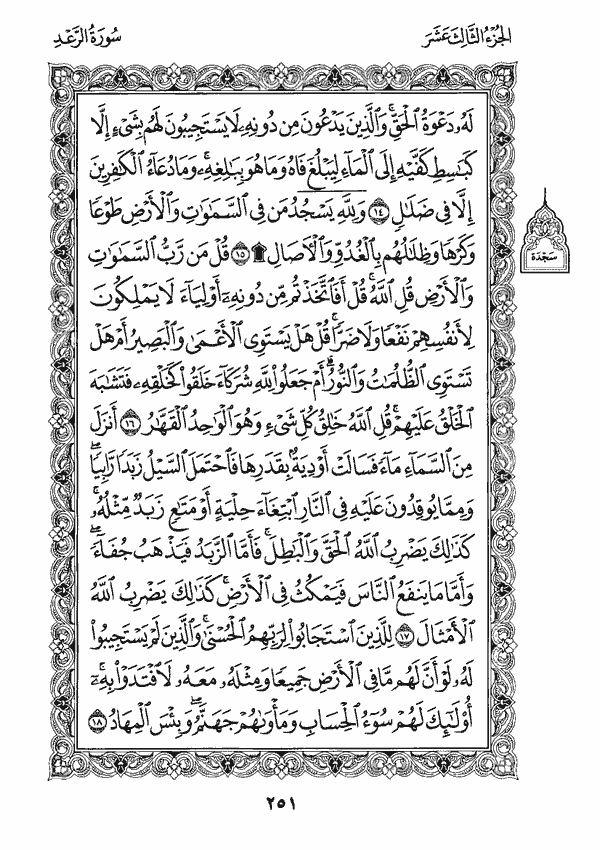 الجزء الثالث عشر
سورة الرعد
لَهُۥ دَعْوَةُ ٱلْحَقِّ ۖ وَٱلَّذِينَ يَدْعُونَ مِن دُونِهِۦ لَا يَسْتَجِيبُونَ لَهُم بِشَىْءٍ إِلَّا
كَبَٰسِطِ كَفَّيْهِ إِلَى ٱلْمَآءِ لِيَبْلُغَ فَاهُ وَمَا هُوَ بِبَٰلِغِهِۦ ۚ وَمَا دُعَآءُ ٱلْكَٰفِرِينَ
إِلَّا فِى ضَلَٰلٍ ١٤ وَلِلَّهِ يَسْجُدُ مَن فِى ٱلسَّمَٰوَٰتِ وَٱلْأَرْضِ طَوْعًا
وَكَرْهًا وَظِلَٰلُهُم بِٱلْغُدُوِّ وَٱلْءَاصَالِ ۩ ١٥ قُلْ مَن رَّبُّ ٱلسَّمَٰوَٰتِ
سجدة
وَٱلْأَرْضِ قُلِ ٱللَّهُ ۚ قُلْ أَفَٱتَّخَذْتُم مِّن دُونِهِۦٓ أَوْلِيَآءَ لَا يَمْلِكُونَ
لِأَنفُسِهِمْ نَفْعًا وَلَا ضَرًّا ۚ قُلْ هَلْ يَسْتَوِى ٱلْأَعْمَىٰ وَٱلْبَصِيرُ أَمْ هَلْ
تَسْتَوِى ٱلظُّلُمَٰتُ وَٱلنُّورُ ۗ أَمْ جَعَلُوا۟ لِلَّهِ شُرَكَآءَ خَلَقُوا۟ كَخَلْقِهِۦ فَتَشَٰبَهَ
ٱلْخَلْقُ عَلَيْهِمْ ۚ قُلِ ٱللَّهُ خَٰلِقُ كُلِّ شَىْءٍ وَهُوَ ٱلْوَٰحِدُ ٱلْقَهَّٰرُ ١٦ أَنزَلَ
مِنَ ٱلسَّمَآءِ مَآءً فَسَالَتْ أَوْدِيَةٌۢ بِقَدَرِهَا فَٱحْتَمَلَ ٱلسَّيْلُ زَبَدًا رَّابِيًا ۚ
وَمِمَّا يُوقِدُونَ عَلَيْهِ فِى ٱلنَّارِ ٱبْتِغَآءَ حِلْيَةٍ أَوْ مَتَٰعٍ زَبَدٌ مِّثْلُهُۥ ۚ
كَذَٰلِكَ يَضْرِبُ ٱللَّهُ ٱلْحَقَّ وَٱلْبَٰطِلَ ۚ فَأَمَّا ٱلزَّبَدُ فَيَذْهَبُ جُفَآءً ۖ
وَأَمَّا مَا يَنفَعُ ٱلنَّاسَ فَيَمْكُثُ فِى ٱلْأَرْضِ ۚ كَذَٰلِكَ يَضْرِبُ ٱللَّهُ
ٱلْأَمْثَالَ ١٧ لِلَّذِينَ ٱسْتَجَابُوا۟ لِرَبِّهِمُ ٱلْحُسْنَىٰ ۚ وَٱلَّذِينَ لَمْ يَسْتَجِيبُوا۟
لَهُۥ لَوْ أَنَّ لَهُم مَّا فِى ٱلْأَرْضِ جَمِيعًا وَمِثْلَهُۥ مَعَهُۥ لَٱفْتَدَوْا۟ بِهِۦٓ ۚ
أُو۟لَٰٓئِكَ لَهُمْ سُوٓءُ ٱلْحِسَابِ وَمَأْوَىٰهُمْ جَهَنَّمُ ۖ وَبِئْسَ ٱلْمِهَادُ ١٨
٢٥١